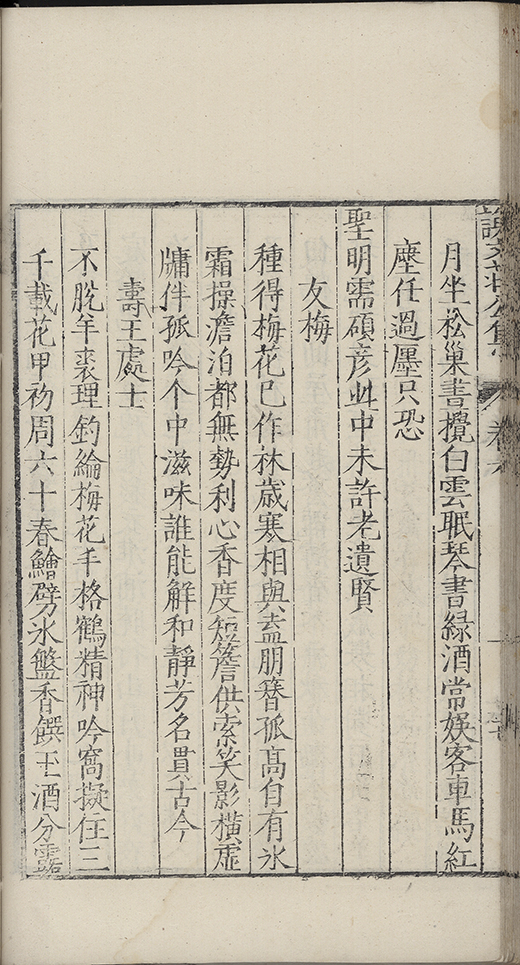 月坐松巢書攬白雲眠琴書緑酒常娱客車馬紅
塵任過廛只恐
聖明需碩彦此中未許老遺賢
友梅
種得梅花已作林歳寒相與盍朋簪孤高自有氷
霜操澹泊都無勢利心香度短簷供索笑影横虚
牗伴孤吟个中滋味誰能解和靜芳名貫古今
壽王處士
不脱羊裘理釣綸梅花手格鶴精神吟窩擬住三
千載花甲初周六十春鱠劈氷盤香饌玉酒分露